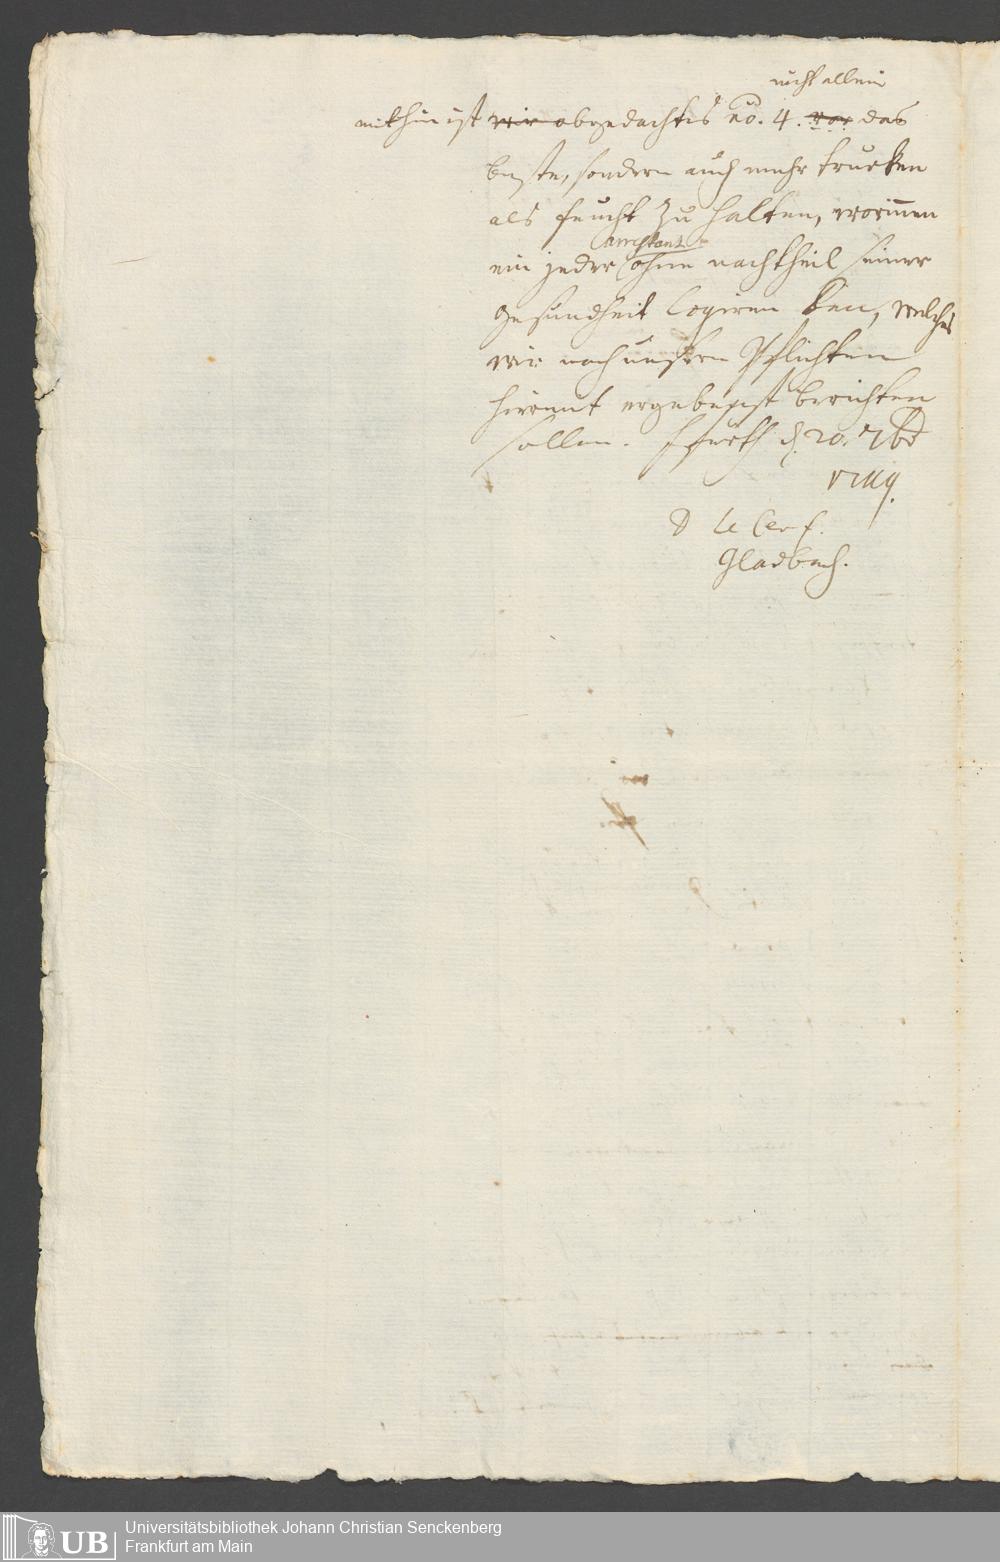 nicht allein
mithin ist wir obgedachtes No. 4. vor das
beste, sondern auch mehr trucken
als feucht zu halten, worinnen
Arrestant
ein jeder ohne nachtheil seiner
gesundheit logiren kan, welches
wir nach unsern Pflichten
hiermit ergebenst berichten
sollen. Ffurth d. 20. 7br
D le Cerf.
Gladbach.
UB
Universitätsbibliothek Johann Christian Senckenberg
Frankfurt am Main